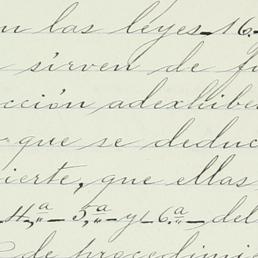 n las leyes 16.
sirven de f
cción adexhibe
rque se deduc
ierte, que ellas
4,ª 5,ª y 6.ª del
de procedimi